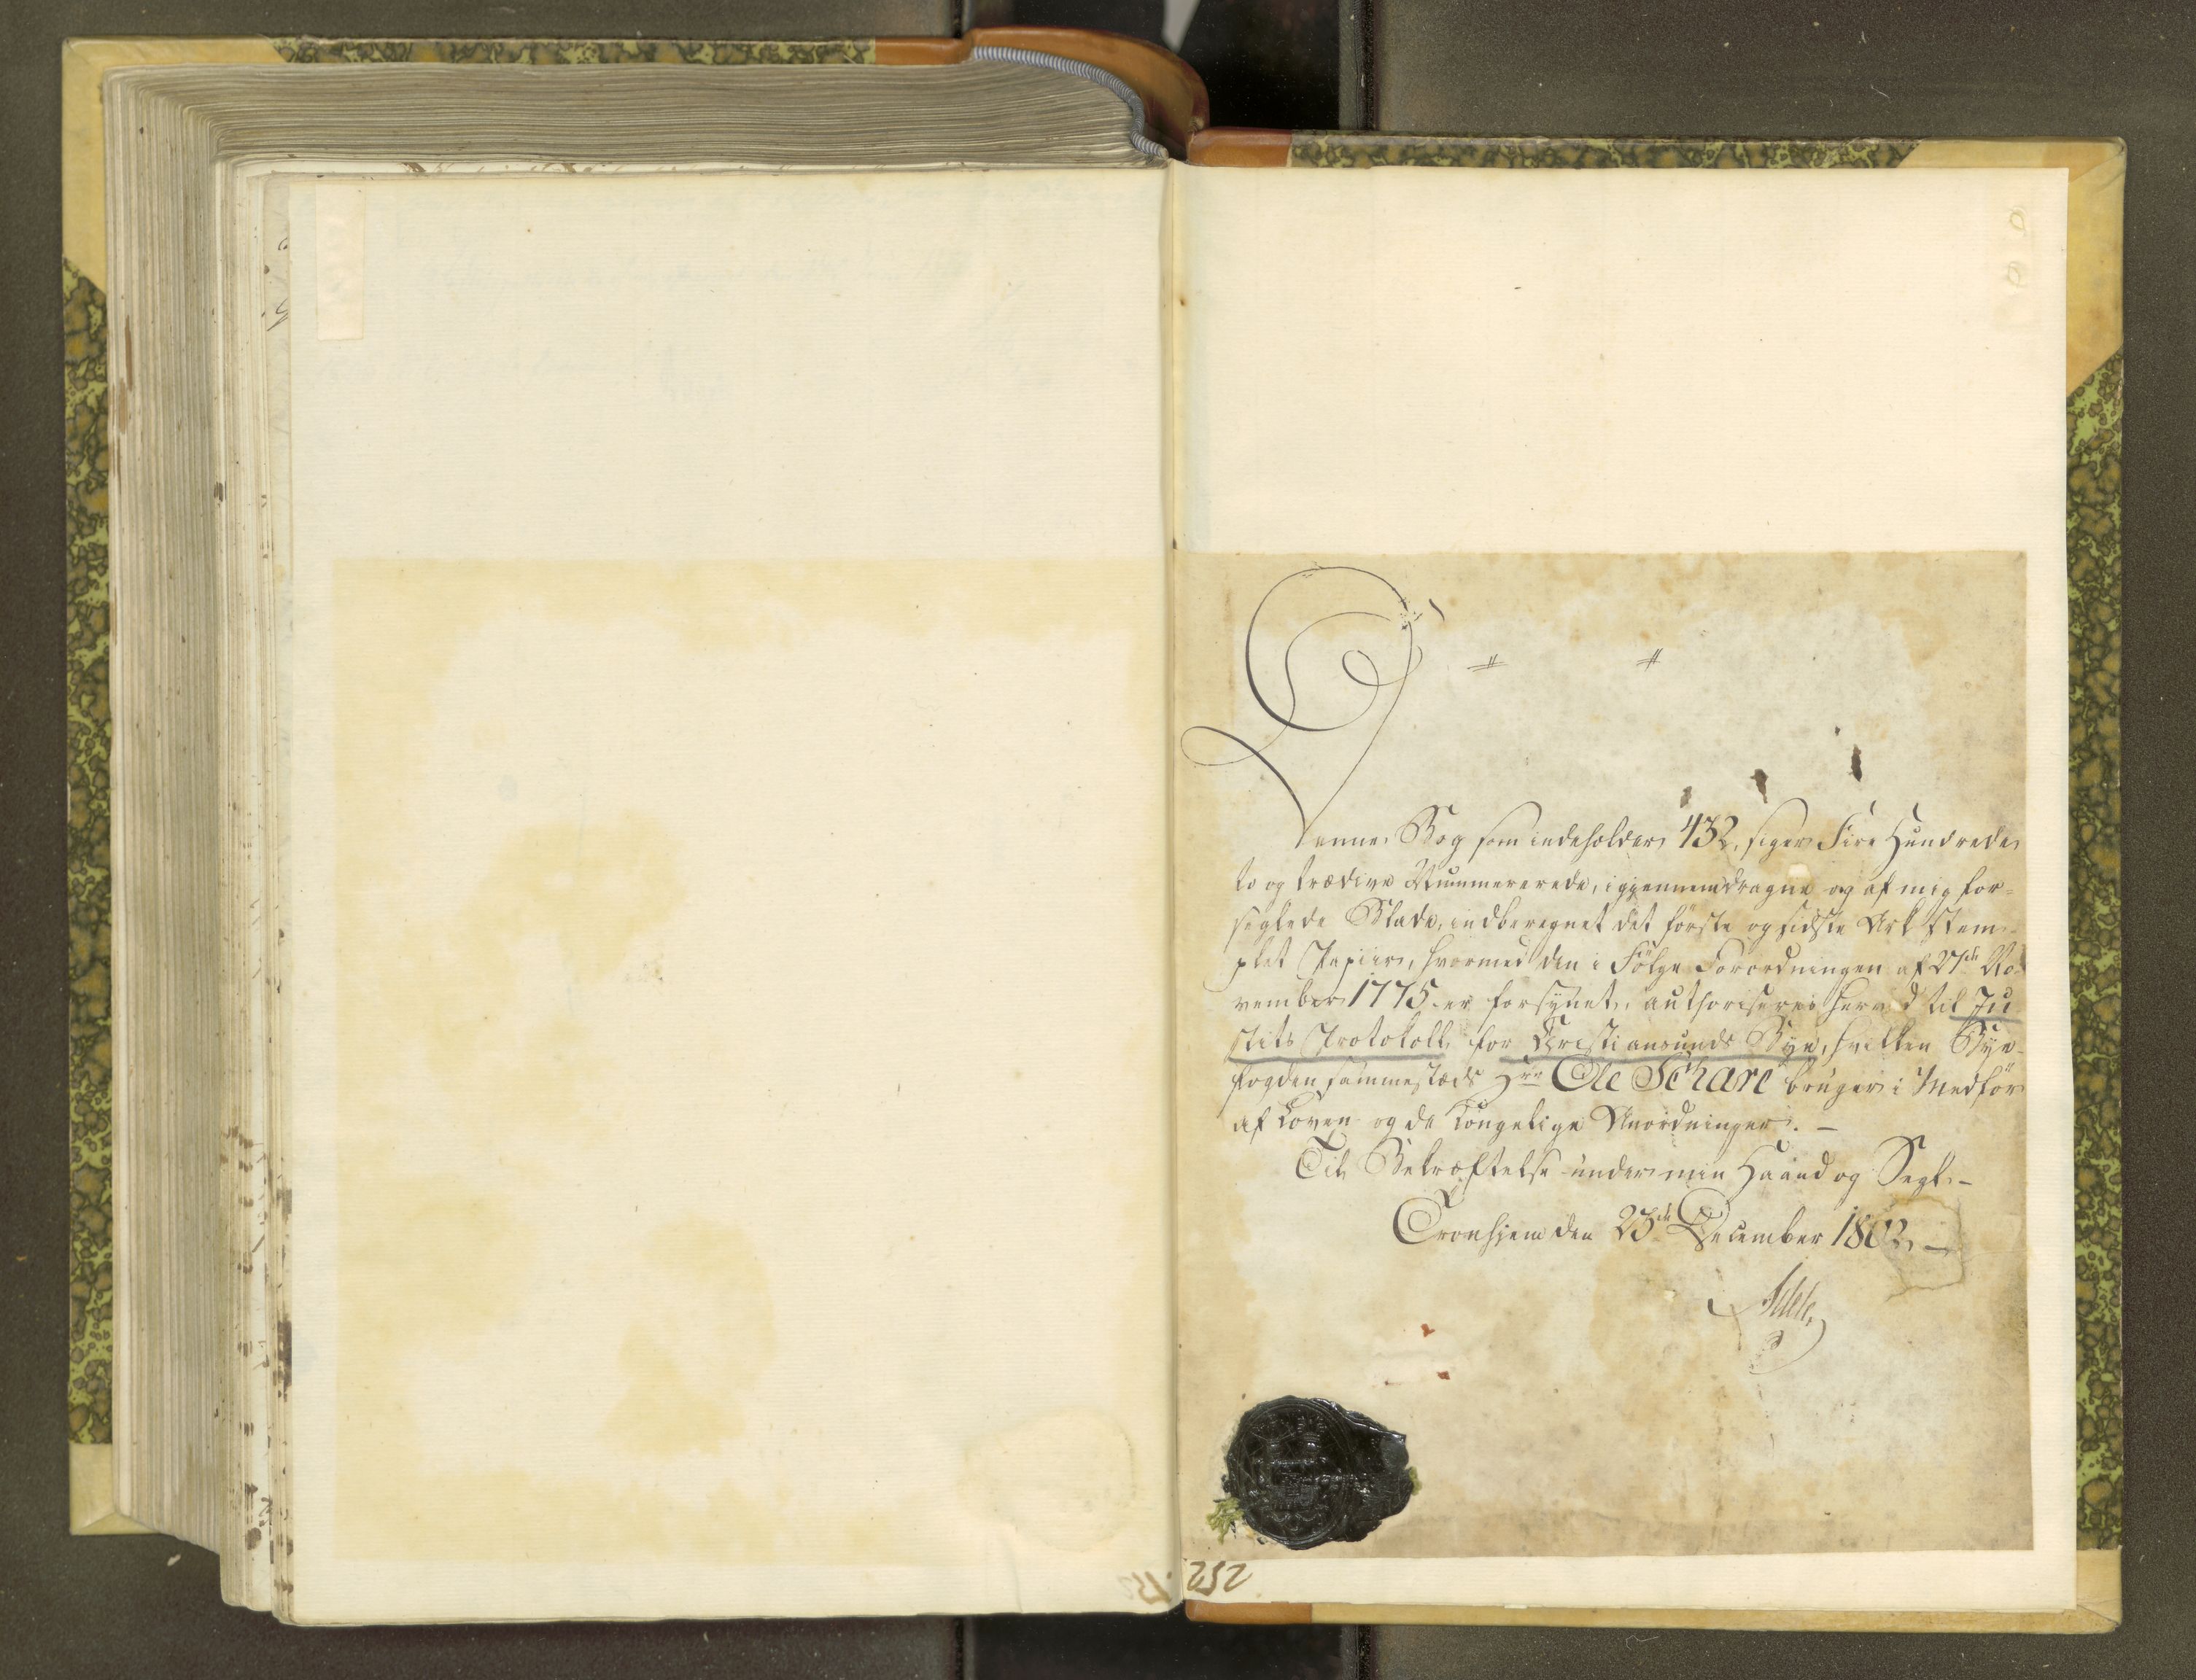 Denne Bog som indeholder 432, siger Fire Hundrede
to og tredive Nummererede, igjennemdragne og af mig for=
seglede Blade, indberegnet det første og sidste Ark Stem=
plet Papiir, hvormed den i Følge Forordningen af 27de No=
vember 1775 er forsynet, authoriseres herved til Ju
stits Protokoll for Christiansunds Bye, hvilken Bye=
fogden sammestæds Hrr Ole Schare bruger i Medfør
af Loven og de Kongelige Anordninger. —
Til Bekræftelse under min Haand og Segl. —
Tronhjem den 23de December 1802. —
252